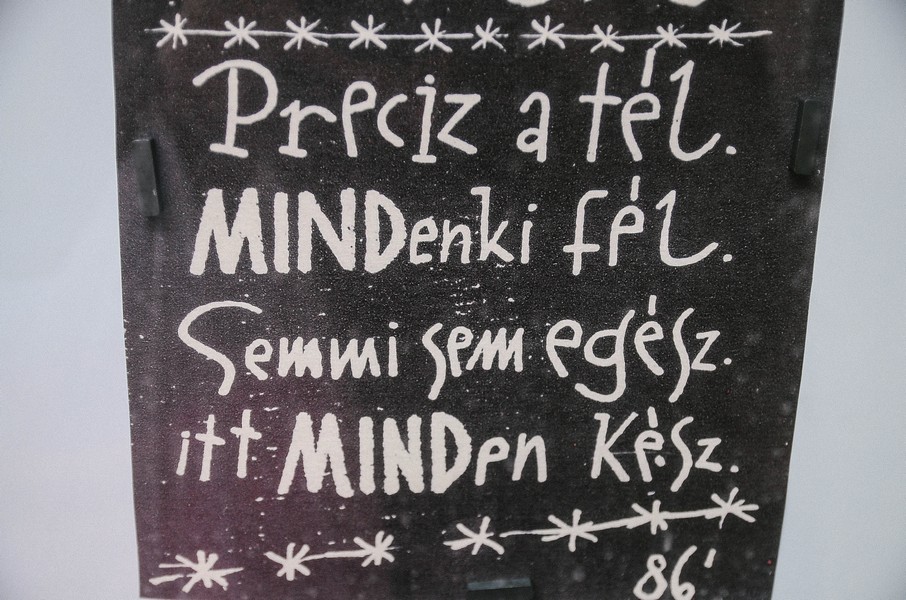 Preciz a tél.
MINDenki fél.
Semmi sem egész.
itt MINDen Kész.
86'